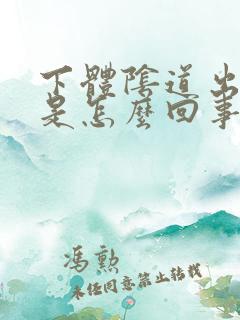 下體陰道出
是怎麼回事
馮勲
未经同意禁止转载